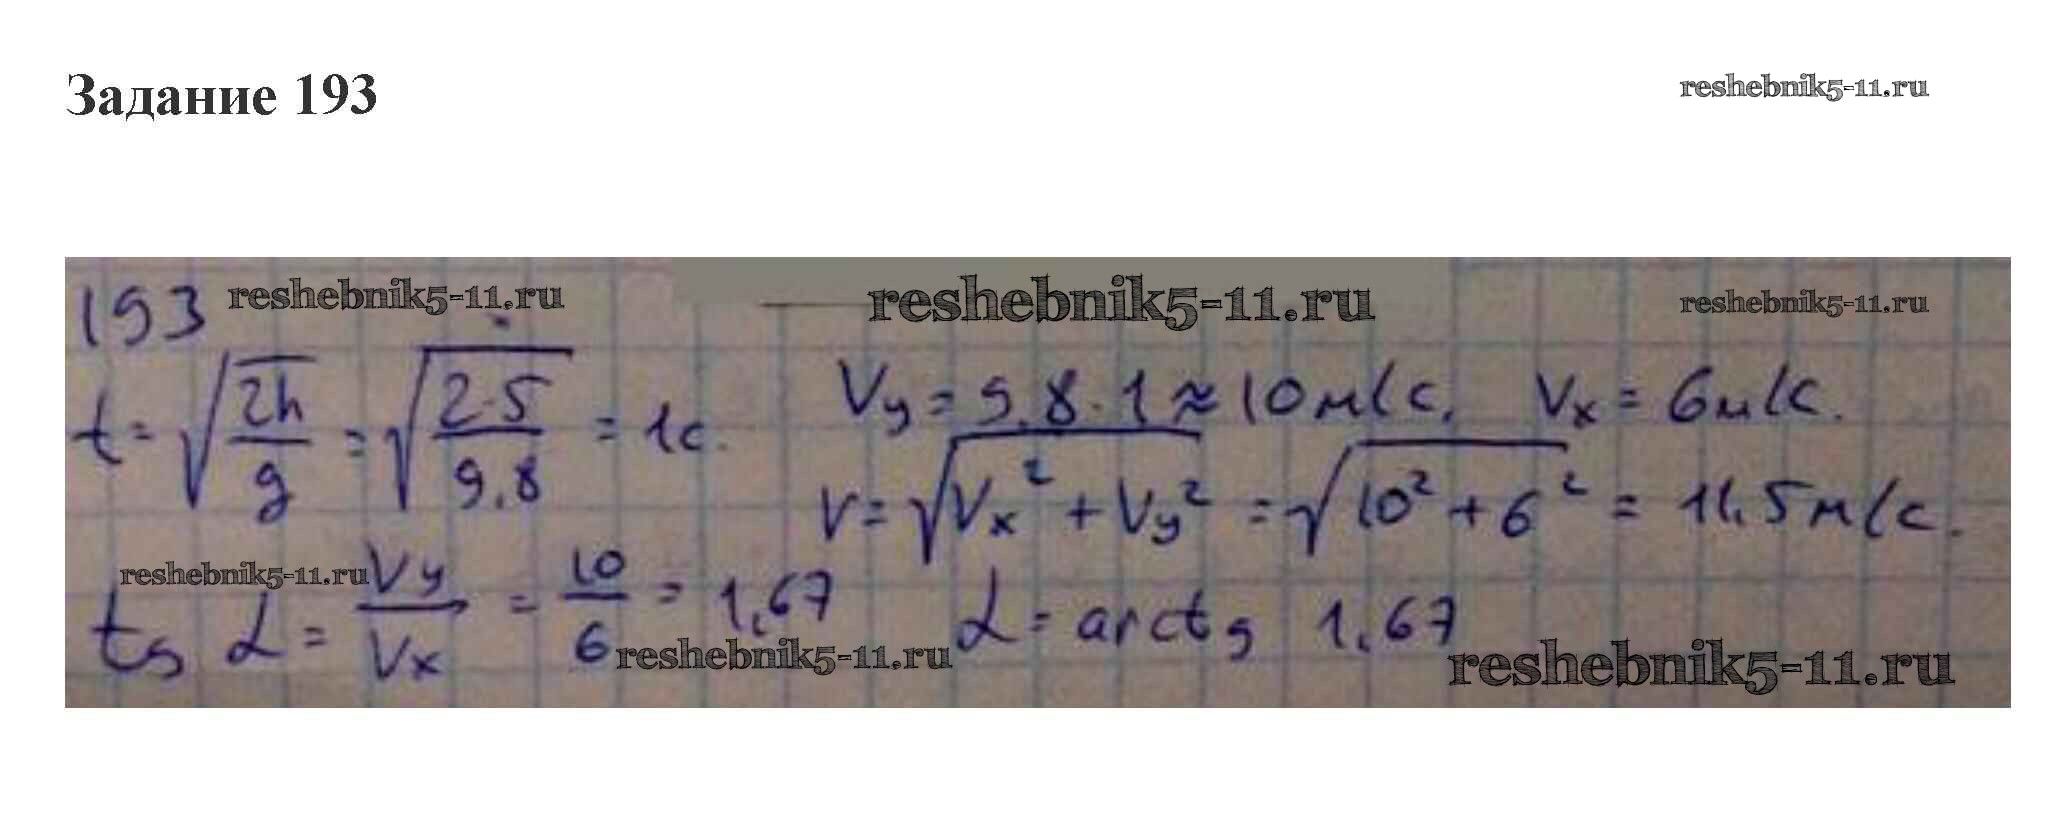 Задание 193 reshebnik5-11.ru
193 reshebnik5-11.ru reshebnik5-11.ru reshebnik5-11.ru
t = √(2h/g) = √(2·5/9,8) = 1с. Vy = 9,8·1 ≈ 10м/с, Vx = 6м/с.
V = √(Vx² + Vy²) = √(10² + 6²) = 11,5м/с.
reshebnik5-11.ru
tg α = Vy/Vx = 10/6 = 1,67 α = arctg 1,67
reshebnik5-11.ru reshebnik5-11.ru